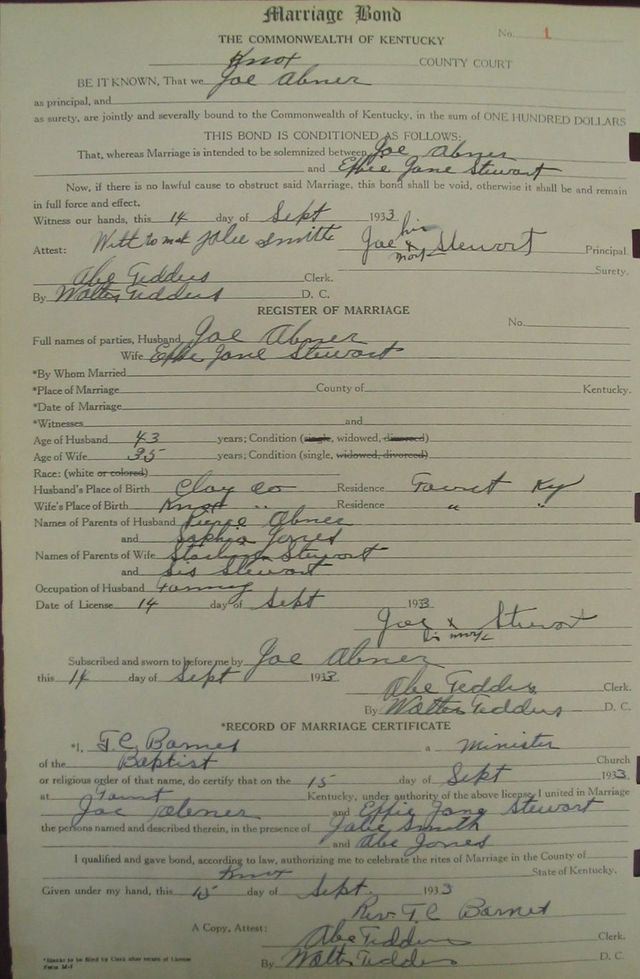 Marriage Bond
THE COMMONWEALTH OF KENTUCKY No. 1
Knox COUNTY COURT
BE IT KNOWN, That we Joe Abner
as principal, and
as surety, are jointly and severally bound to the Commonwealth of Kentucky, in the sum of ONE HUNDRED DOLLARS
THIS BOND IS CONDITIONED AS FOLLOWS:
That, whereas Marriage is intended to be solemnized between Joe Abner
and Effie Jane Stewart
Now, if there is no lawful cause to obstruct said Marriage, this bond shall be void, otherwise it shall be and remain
in full force and effect.
Witness our hands, this 14 day of Sept 1933
Attest: Witt to mark Jalie Smith Joe his x mark Stewort Principal.
Surety.
Abe Tedders Clerk.
By Walter Tedders D. C.
REGISTER OF MARRIAGE
No.
Full names of parties, Husband Joe Abner
Wife Effie Jane Stewart
*By Whom Married
*Place of Marriage County of Kentucky.
*Date of Marriage
*Witnesses and
Age of Husband 43 years; Condition (single, widowed, divorced)
Age of Wife 35 years; Condition (single, widowed, divorced)
Race: (white or colored)
Husband's Place of Birth Clay Co Residence Ky
Wife's Place of Birth Knox " Residence " "
Names of Parents of Husband Abner
and Sophia Jones
Names of Parents of Wife Stewort
and Sis Stewart
Occupation of Husband
Date of License 14 day of Sept 1933
Joe x Stewort
his mark
Subscribed and sworn to before me by Joe Abner
this 14 day of Sept 1933
Abe Tedders Clerk.
By Walter Tedders D. C.
*RECORD OF MARRIAGE CERTIFICATE
*I, T.C. Barnes a Minister
of the Baptist Church
or religious order of that name, do certify that on the 15 day of Sept 1933
at Kentucky, under authority of the above license, I united in Marriage
Joe Abner and Effie Jane Stewort
the persons named and described therein, in the presence of Jalie Smith
and Abe Jones
I qualified and gave bond, according to law, authorizing me to celebrate the rites of Marriage in the County of
Knox State of Kentucky.
Given under my hand, this 15 day of Sept. 1933
Rev. T.C Barnes
A Copy, Attest: Abe Tedders Clerk.
By Walter Tedders D. C.
*Blanks to be filled by Clerk after return of License
Form M-1